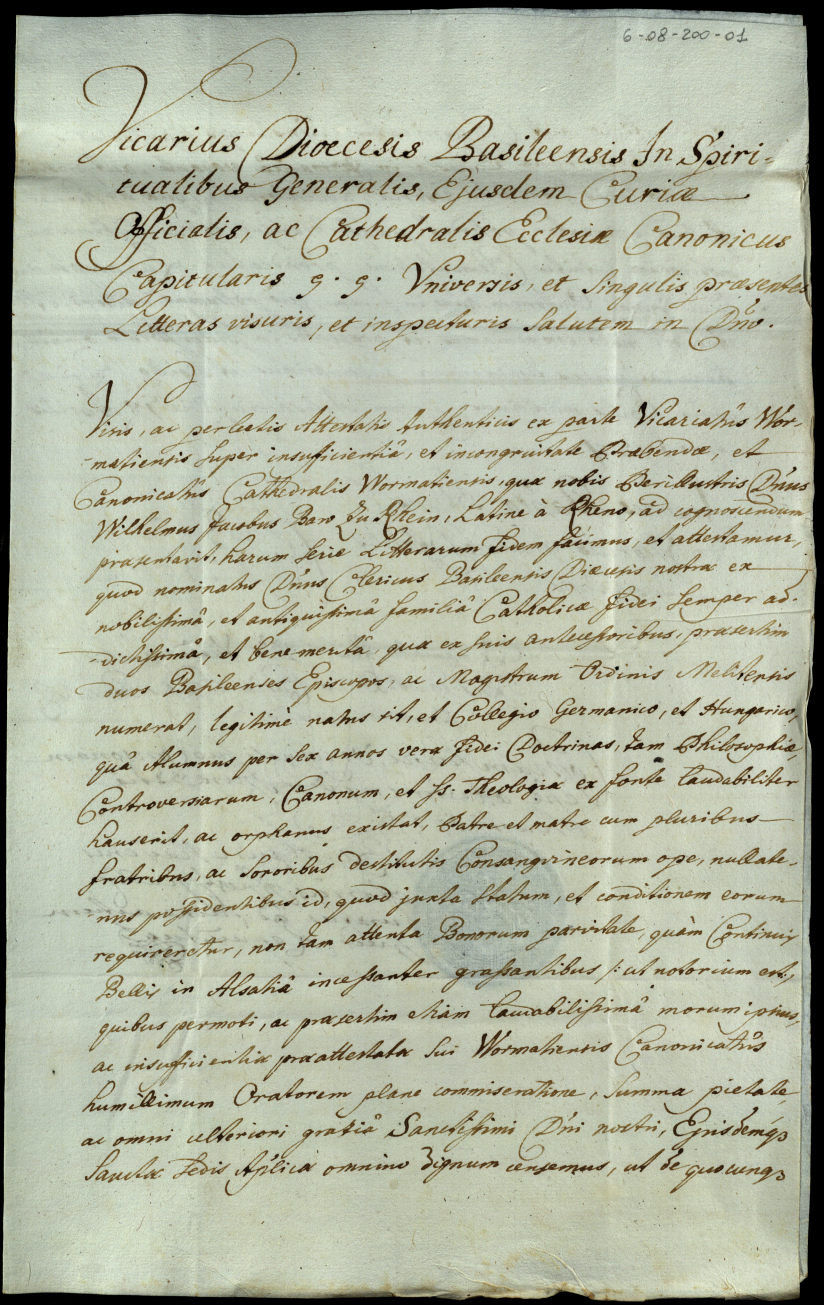 6-08-200-01
Vicarius Dioecesis Basileensis In Spiri-
tualibus Generalis, Ejusdem Curiæ
Officialis, ac Cathedralis Ecclesiæ Canonicus
Capitularis g. g. Universis, et singulis præsentes
Litteras visuris, et inspecturis Salutem in Dño.
Visis, ac perlectis Attestatis Authenticis ex parte Vicariatûs Wor-
matiensis super insufficientiâ, et incongruitate Præbendæ, et
Canonicatûs Cathedralis Wormatiensis, quæ nobis Perillustris Dñus
Wilhelmus Jacobus Baro Zu Rhein, Latine à Rheno, ad cognoscendum
præsentavit, harum serie Litterarum fidem facimus, et attestamur,
quod nominatus Dñus Clericus Basileensis Diæcesis nostræ ex
nobilissimâ, et antiquissimâ familiâ Catholicæ fidei semper ad-
dictissimâ, et bene meritâ, quæ ex suis antecessoribus, præsertim
duos Basileenses Episcopos, ac Magistrum Ordinis Melitensis
numerat, legitimè natus sit, et Collegio Germanico, et Hungarico,
quâ Alumnus per sex annos veræ fidei Doctrinas, tam Philosophiæ,
Controversiarum, Canonum, et ss: Theologiæ ex fonte laudabiliter
hauserit, ac orphanus existat, Patre et matre cum pluribus
fratribus, ac Sororibus destitutis Consangvineorum ope, nullate-
nus possidentibus id, quod juxta statum, et conditionem eorum
requireretur, non tam attenta Bonorum parvitate, quàm Continuis
Bellis in Alsatiâ incessanter grassantibus /: ut notorium est:/
quibus permoti, ac præsertim etiam laudabilissimâ morum ipsius,
ac insufficientiæ præattestatæ sui Wormatiensis Canonicatûs
humillimum Oratorem plane commiseratione, summa pietate,
ac omni ulteriori gratiâ Sanctissimi Dñi nostri, Ejusdemq3
Sanctæ Sedis Aplicæ omnino dignum censemus, ut de quocunq3